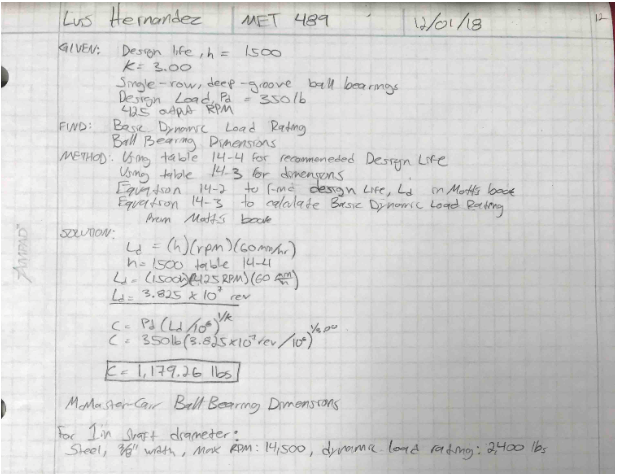 Luis Hernandez MET 489 12/01/18 12
GIVEN: Design life, h = 1500
K = 3.00
Single-row, deep-groove ball bearings
Design Load, Pd = 350 lb
425 RPM
FIND: Basic Dynamic Load Rating
Ball Bearing Dimensions
METHOD: Using table 14-4 for recommeneded Design Life
Using table 14-3 for dimensions
Equation 14-2 to find design Life, Ld in Mott's book
Equation 14-3 to calculate Basic Dynamic Load Rating
from Mott's book
SOLUTION:
Ld = (h)(rpm)(60 min/hr)
h = 1500 table 14-4
Ld = (1500h)(425 RPM)(60 min/hr)
Ld = 3.825 x 10^7 rev
C = Pd (Ld/10^6)^1/K
C = 350lb (3.825x10^7 rev/10^6)^1/3.00
C = 1,179.26 lbs
McMaster-Carr Ball Bearing Dimensions
For 1in Shaft diameter:
Steel, 3/8" width, Max RPM: 14,500, dynamic load rating: 2,400 lbs
AMPAD